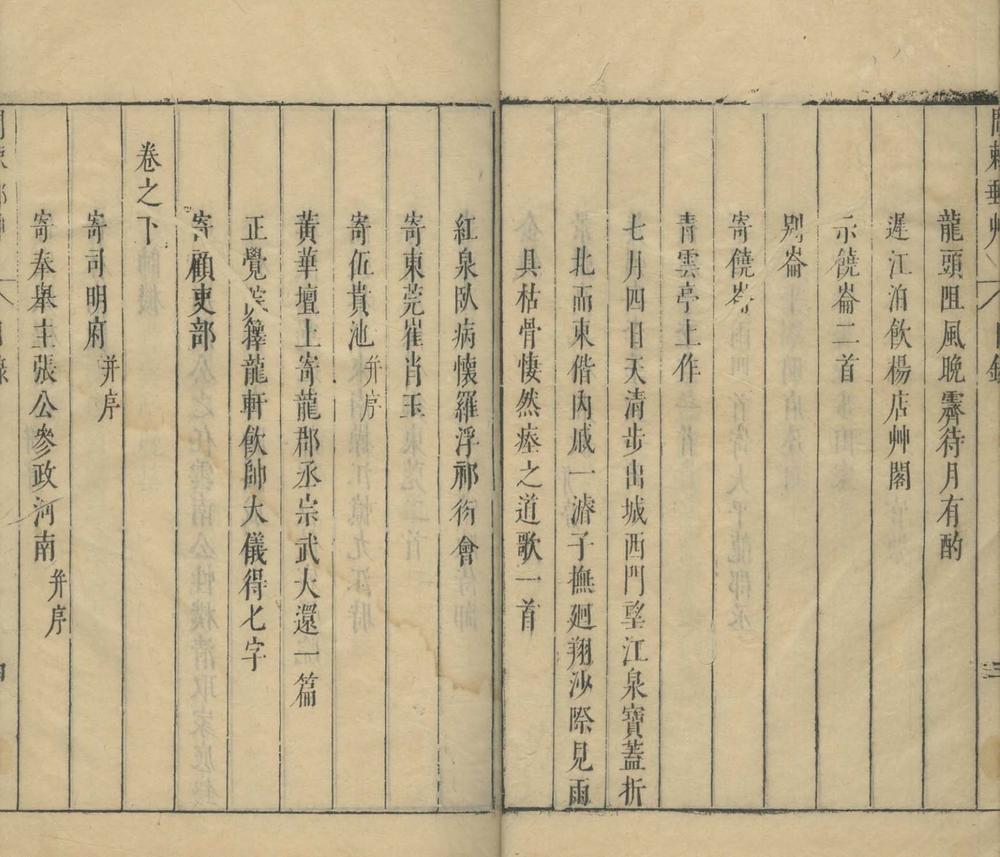 龍頭阻風晚霽待月有酌
遲江泊飲楊店艸閣
示饒崙二首
別崙
寄饒崙
青雲亭上作
七月四日天清步出城西門望江泉寶蓋折
北而東偕內戚一濬子撫廻翔沙際見雨
具枯骨悽然瘞之道歌一首
紅泉臥病懷羅浮祁衍會
寄東莞崔肖玉
寄伍貴池并序
黃華壇上寄龍郡丞宗武大還一篇
正覺寺籜龍軒飲帥大儀得七字
寄顧吏部
卷之下
寄司明府并序
寄奉舉主張公參政河南并序